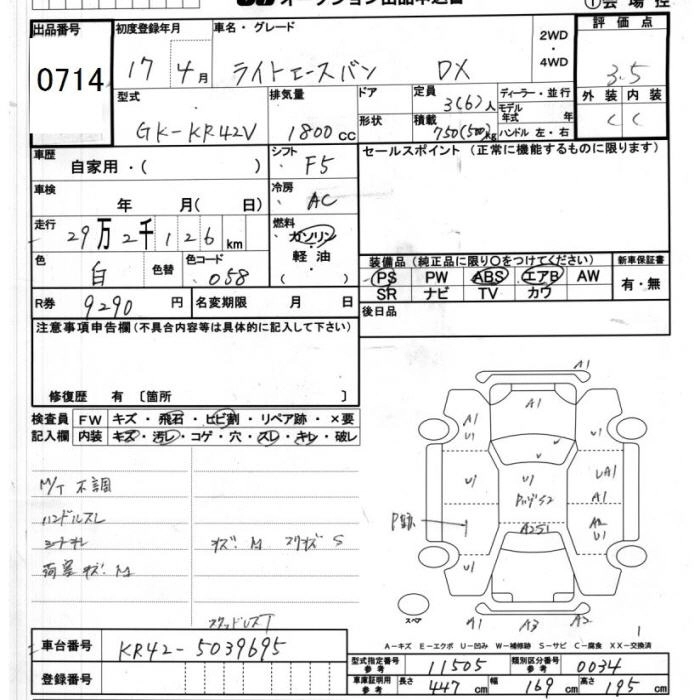 オークション出品申込書
①会場控
出品番号 0714
初度登録年月 17 4月
車名・グレード ライトエースバン DX
2WD・4WD
評価点 3.5
型式 GK-KR42V
排気量 1800cc
ドア
形状
定員 3(6)人
積載 750(500)kg
ディーラー・並行
モデル年式 年
ハンドル 左・右
外装 C
内装 C
車歴 自家用・( )
シフト F5
セールスポイント (正常に機能するものに限ります)
車検 年 月( 日)
冷房 AC
走行 29万2千126km
燃料 ガソリン・軽油・( )
色 白 色替
色コード 058
装備品 (純正品に限り○をつけてください)
新車保証書
PS PW ABS エアB AW
有・無
SR ナビ TV カワ
R券 9290円
名変期限 月 日
後日品
注意事項申告欄(不具合内容等は具体的に記入して下さい)
修復歴 有 〔箇所 〕
検査員記入欄
FW キズ・飛石・ヒビ割・リペア跡・×要
内装 キズ・汚レ・コゲ・穴・スレ・キレ・破レ
M/T 不調
ハンドルスレ
シートキレ
荷室キズ・M
A1
A1
A1
U1
U1
U1
U1
U1
UA1
A1
A2
U1
A251
U1
スペア
A1
A3
A2
1
A-キズ E-エクボ U-凹み W-補修跡 S-サビ C-腐食 XX-交換済
車台番号 KR42-5039695
登録番号
型式指定番号参考 11505
類別区分番号参考 0034
車庫証明用参考 長さ 447cm 幅 169cm 高さ 195cm